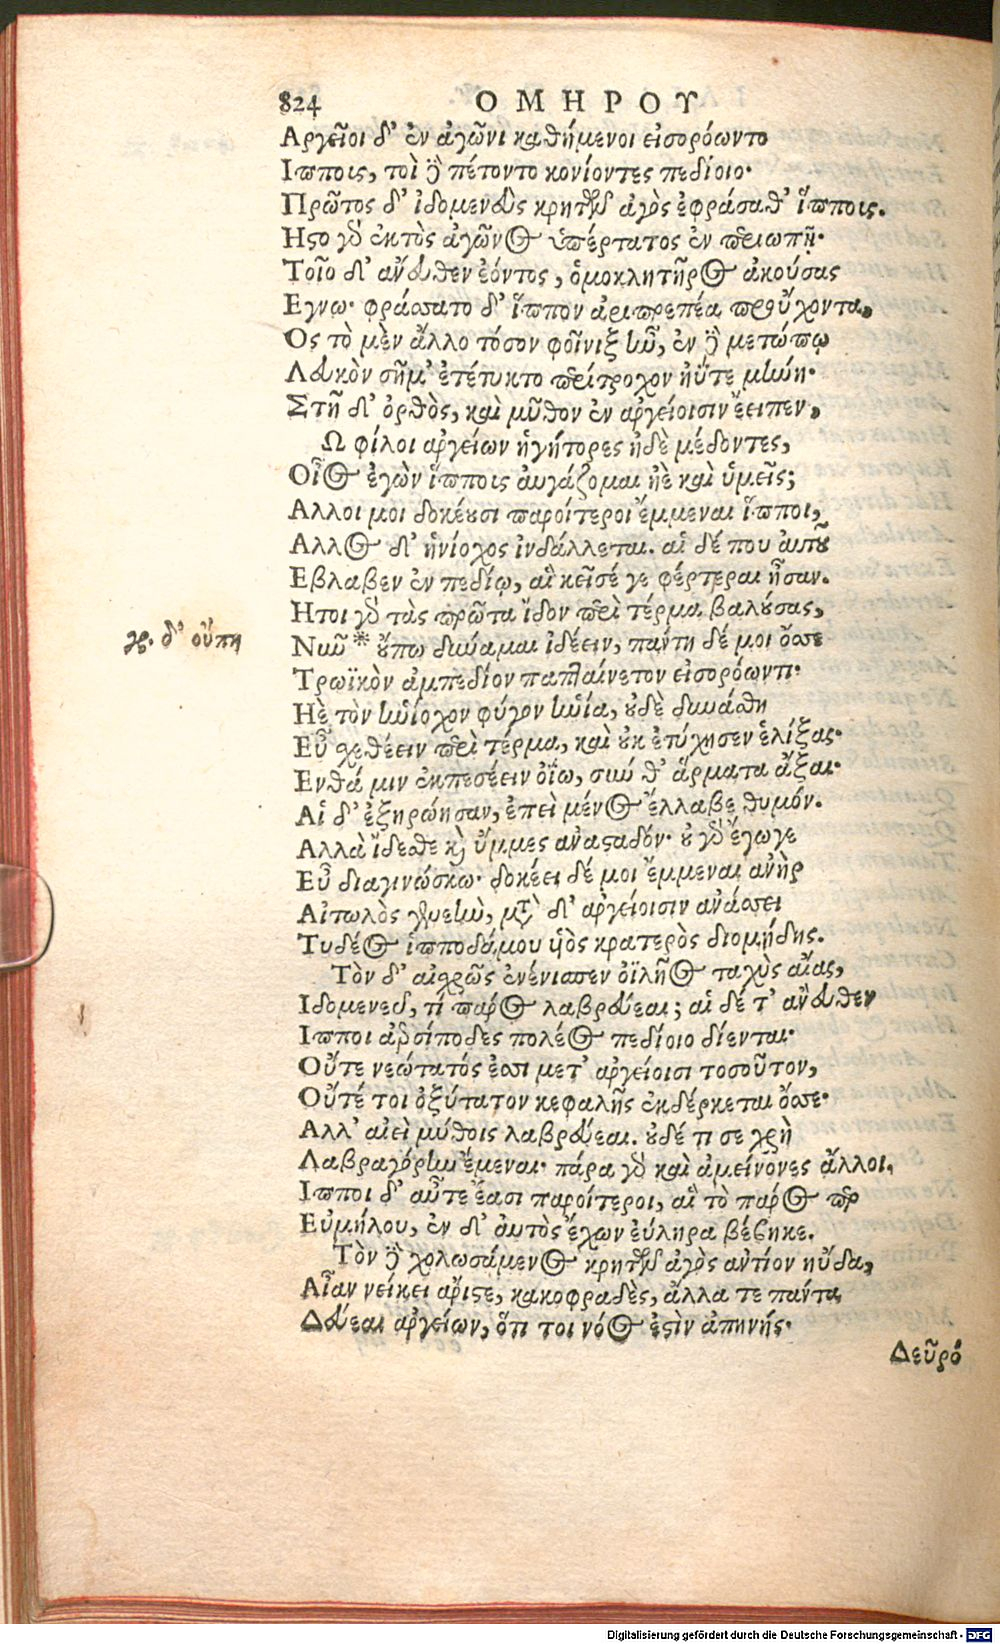 824 ΟΜΗΡΟΥ
Αργεῖοι δ' ἐν ἀγῶνι καθήμενοι εἰσορόωντο
Ιπποις, τοὶ δὲ πέτοντο κονίοντες πεδίοιο·
Πρῶτος δ' ἰδομενεὺς κρητῶν ἀγὸς ἐφράσαθ' ἵπποις.
Ηστο γὰρ ἐκτὸς ἀγῶνος ὑπέρτατος ἐν περιωπῇ·
Τοῖο δ' ἄνευθεν ἐόντος, ὁμοκλητῆρος ἀκούσας
Εγνω· φράσσατο δ' ἵππον ἀριπρεπέα προὔχοντα,
Ος τὸ μὲν ἄλλο τόσον φοῖνιξ ἦν, ἐν δὲ μετώπῳ
Λευκὸν σῆμ' ἐτέτυκτο περίτροχον ἠΰτε μήνη·
Στῆ δ' ὀρθὸς, καὶ μῦθον ἐν ἀργείοισιν ἔειπεν,
Ω φίλοι ἀργείων ἡγήτορες ἠδὲ μέδοντες,
Οἶος ἐγὼν ἵπποις αὐγάζομαι ἠὲ καὶ ὑμεῖς;
Αλλοι μοι δοκέουσι παροίτεροι ἔμμεναι ἵπποι,
Αλλος δ' ἡνίοχος ἰνδάλλεται. αἱ δέ που αὐτοῦ
Εβλαβεν ἐν πεδίῳ, αἳ κεῖσέ γε φέρτεραι ἦσαν.
Ητοι γὰρ τὰς πρῶτα ἴδον περὶ τέρμα βαλούσας,
γρ. δ' οὔπη
Νῦν * οὔπω δύναμαι ἰδέειν, πάντη δέ μοι ὄσσε
Τρωϊκὸν ἀμπεδίον παπταίνετον εἰσορόωντι·
Ηὲ τὸν ἡνίοχον φύγον ἡνία, οὐδὲ δυνάσθη
Εὖ σχεθέειν περὶ τέρμα, καὶ οὐκ ἐτύχησεν ἑλίξας·
Ενθά μιν ἐκπεσέειν ὀΐω, σύν θ' ἅρματα ἆξαι·
Αἱ δ' ἐξηρώησαν, ἐπεὶ μένος ἔλλαβε θυμόν.
Αλλὰ ἴδεσθε καὶ ὔμμες ἀνασταδόν· οὐ γὰρ ἔγωγε
Εὖ διαγινώσκω· δοκέει δέ μοι ἔμμεναι ἀνὴρ
Αἰτωλὸς γενεὴν, μετὰ δ' ἀργείοισιν ἀνάσσει
Τυδέος ἱπποδάμου υἱὸς κρατερὸς διομήδης.
Τὸν δ' αἰσχρῶς ἐνένισπεν ὀϊλῆος ταχὺς αἴας,
Ιδομενεῦ, τί πάρος λαβρεύεαι; αἱ δέ τ' ἄνευθεν
Ιπποι ἀρσίποδες πολέος πεδίοιο δίενται·
Οὔτε νεώτατός ἐσσι μετ' ἀργείοισι τοσοῦτον,
Οὔτέ τοι ὀξύτατον κεφαλῆς ἐκδέρκεται ὄσσε·
Αλλ' αἰεὶ μύθοις λαβρεύεαι. οὐδέ τι σε χρὴ
Λαβραγόρην ἔμεναι· πάρα γὰρ καὶ ἀμείνονες ἄλλοι,
Ιπποι δ' αὖτε ἔασι παροίτεροι, αἳ τὸ πάρος περ
Εὐμήλου, ἐν δ' αὐτὸς ἔχων εὔληρα βέβηκε.
Τὸν δὲ χολωσάμενος κρητῶν ἀγὸς ἀντίον ηὔδα,
Αἶαν νείκει ἄριστε, κακοφραδὲς, ἄλλα τε πάντα
Δεύεαι ἀργείων, ὅτι τοι νόος ἐστὶν ἀπηνής·
Δεῦρό
Digitalisierung gefördert durch die Deutsche Forschungsgemeinschaft - DFG